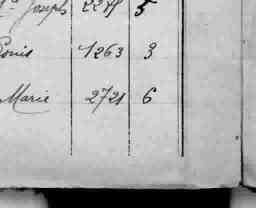 Joseph 2271 5
Louis 1263 3
Marie 2721 6